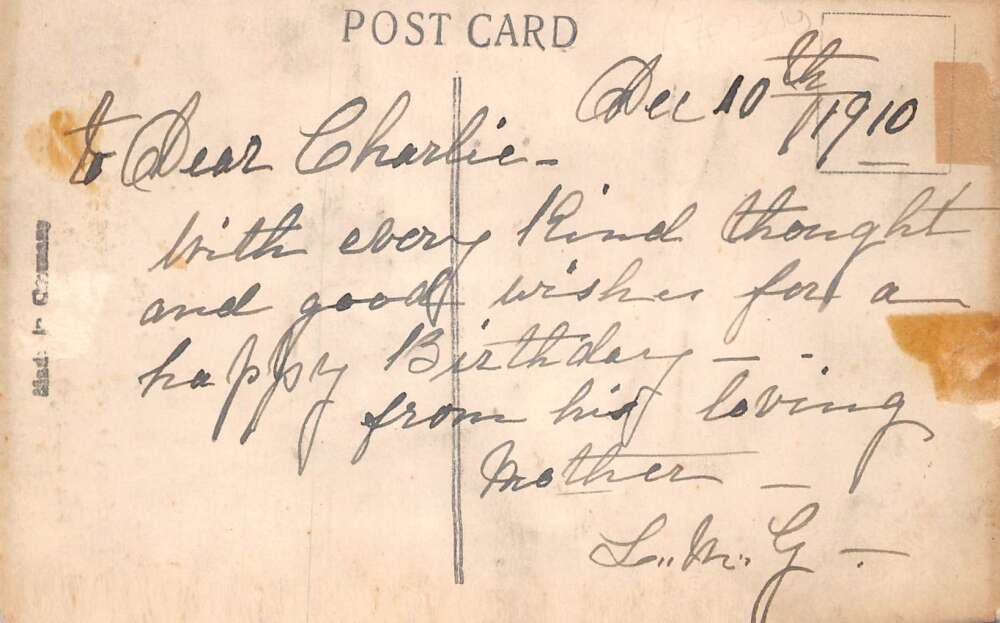 POST CARD
Dec 10th 1910
to Dear Charlie -
With every Kind thought
and good wishes for a
happy Birthday - -
from his loving
Mother -
L. M. G -
Made in Germany